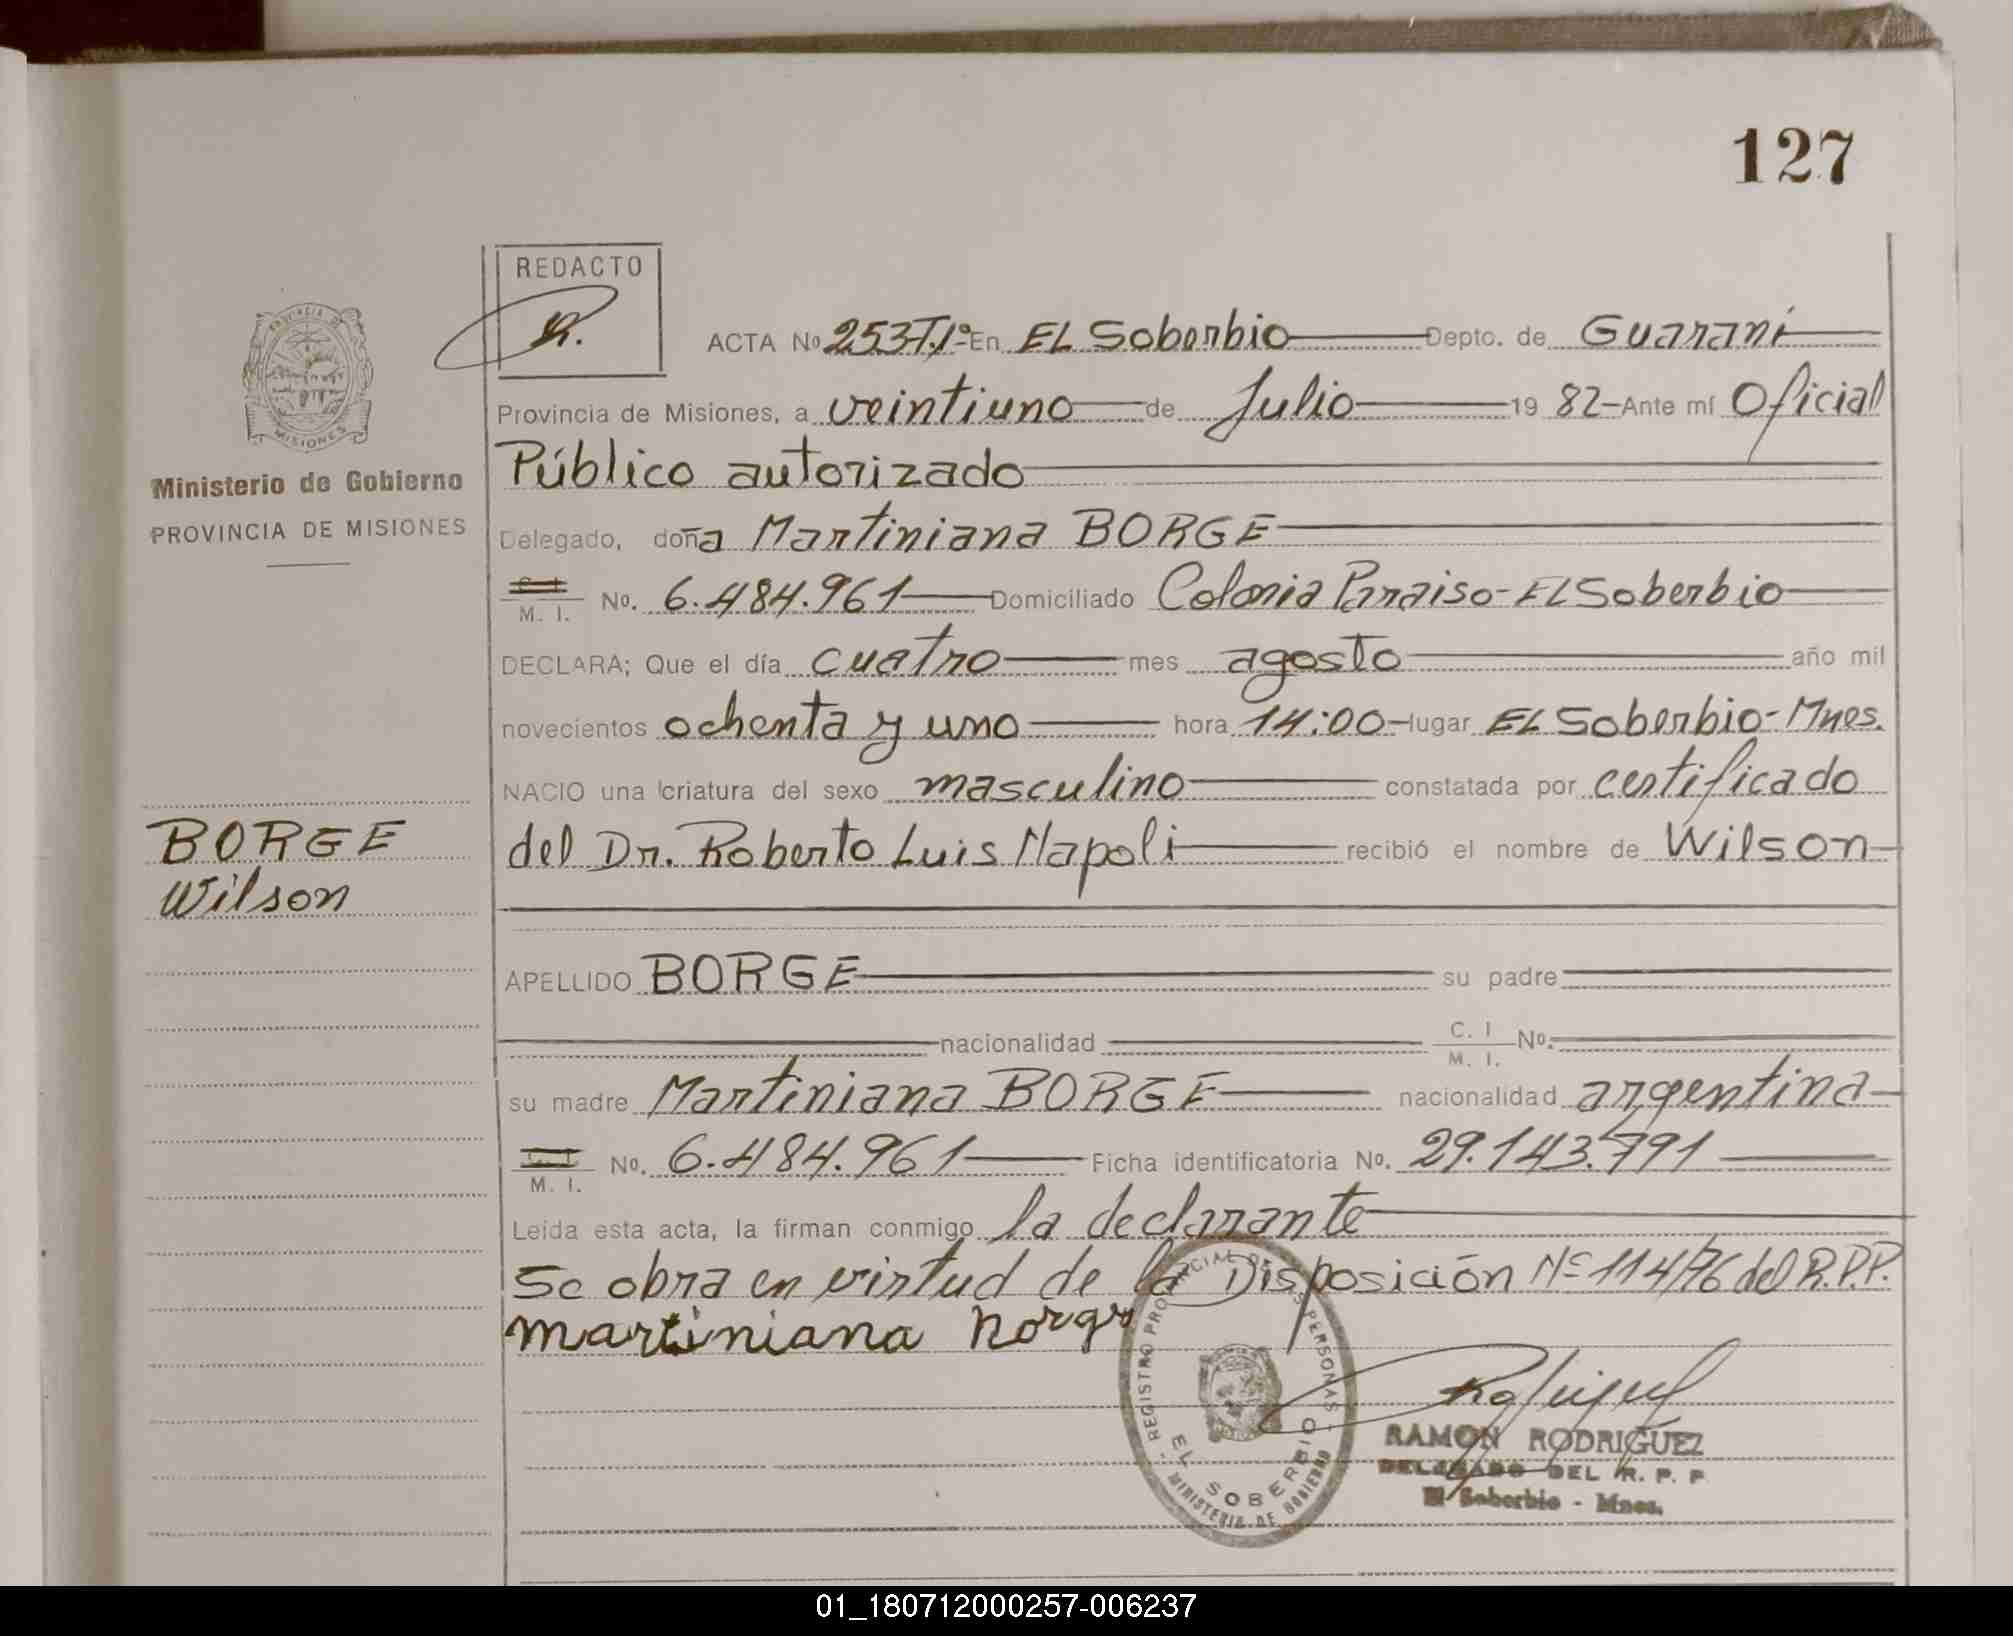 127
REDACTO
R.
PROVINCIA DE
MISIONES
Ministerio de Gobierno
PROVINCIA DE MISIONES
BORGE
Wilson
ACTA No 253T.1º En EL Soberbio Depto. de Guaraní
Provincia de Misiones, a veintiuno de Julio 19 82 Ante mí Oficial
Público autorizado
Delegado, doña Martiniana BORGE
M. I. No. 6.484.961 Domiciliado Colonia Paraiso - EL Soberbio
DECLARA; Que el día cuatro mes agosto año mil
novecientos ochenta y uno hora 14:00 lugar EL Soberbio - Mnes.
NACIO una criatura del sexo masculino constatada por certificado
del Dr. Roberto Luis Napoli recibió el nombre de Wilson
APELLIDO BORGE su padre
nacionalidad C. I. M. I. No.
su madre Martiniana BORGE nacionalidad argentina
M. I. No. 6.484.961 Ficha identificatoria No. 29.143.791
Leída esta acta, la firman conmigo la declarante
Se obra en virtud de la Disposición Nº 114/76 del R.P.P.
martiniana
REGISTRO PROVINCIAL DE LAS PERSONAS
EL SOBERBIO
MINISTERIO DE GOBIERNO
RAMON RODRIGUEZ
DELEGADO DEL R. P. P
El Soberbio - Mnes.
01_180712000257-006237